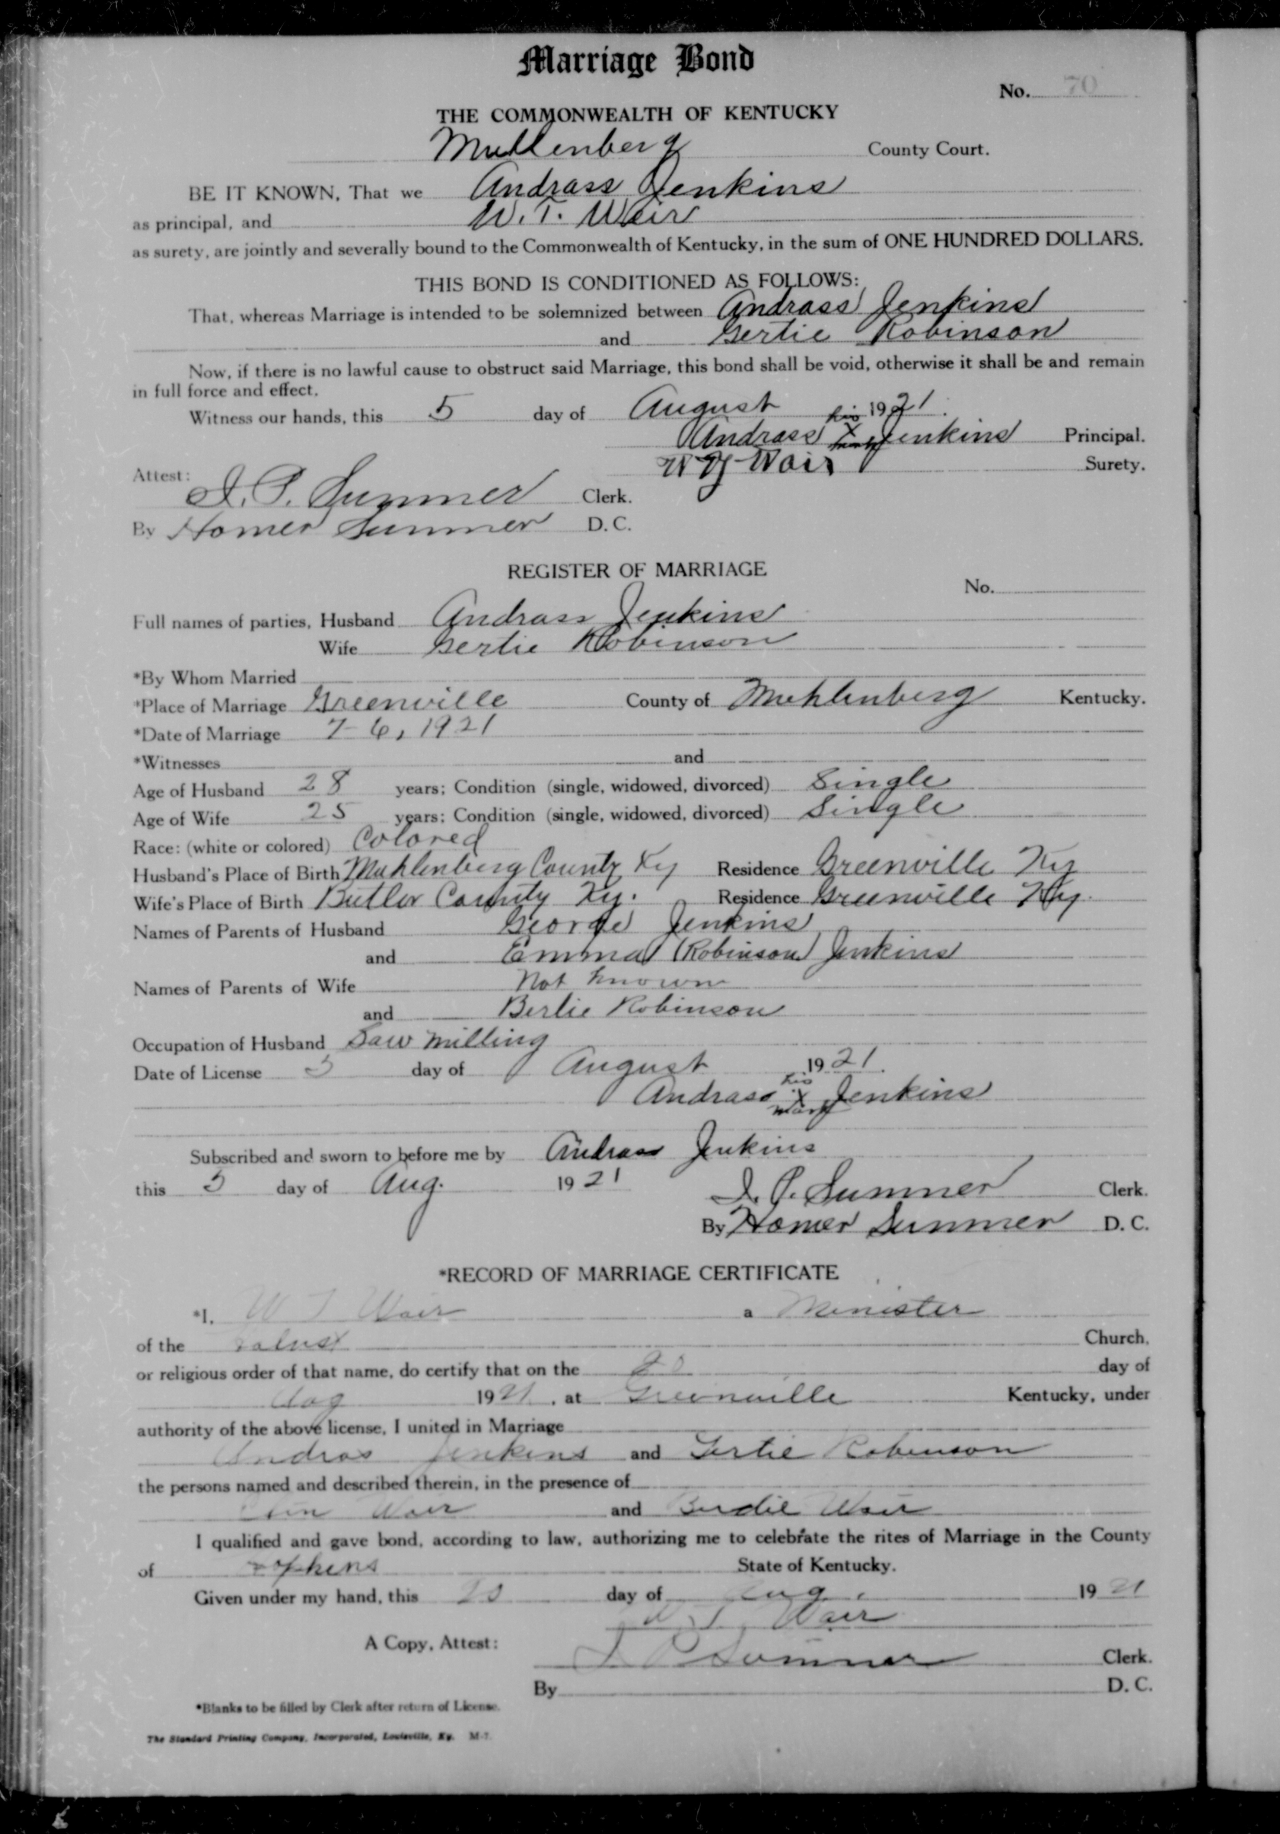 Marriage Bond
No. 70
THE COMMONWEALTH OF KENTUCKY
Muhlenberg County Court.
BE IT KNOWN, That we Andrass Jenkins
as principal, and W. T. Wair
as surety, are jointly and severally bound to the Commonwealth of Kentucky, in the sum of ONE HUNDRED DOLLARS.
THIS BOND IS CONDITIONED AS FOLLOWS:
That, whereas Marriage is intended to be solemnized between Andrass Jenkins
and Gertie Robinson
Now, if there is no lawful cause to obstruct said Marriage, this bond shall be void, otherwise it shall be and remain
in full force and effect.
Witness our hands, this 5 day of August 1921.
Andrass his X mark Jenkins Principal.
W T Wair Surety.
Attest:
J. P. Summer Clerk.
By Homer Summer D. C.
REGISTER OF MARRIAGE
No.
Full names of parties, Husband Andrass Jenkins
Wife Gertie Robinson
*By Whom Married
*Place of Marriage Greenville County of Muhlenberg Kentucky.
*Date of Marriage 7-6, 1921
*Witnesses and
Age of Husband 28 years; Condition (single, widowed, divorced) Single
Age of Wife 25 years; Condition (single, widowed, divorced) Single
Race: (white or colored) Colored
Husband's Place of Birth Muhlenberg County Ky Residence Greenville Ky
Wife's Place of Birth Butler County Ky. Residence Greenville Ky.
Names of Parents of Husband George Jenkins
and Emma (Robinson) Jenkins
Names of Parents of Wife Not Known
and Bertie Robinson
Occupation of Husband Saw Milling
Date of License 5 day of August 1921.
Andrass his X mark Jenkins
Subscribed and sworn to before me by Andrass Jenkins
this 5 day of Aug. 1921
J. P. Summer Clerk.
By Homer Summer D. C.
*RECORD OF MARRIAGE CERTIFICATE
*I, W T Wair a Minister
of the Church,
or religious order of that name, do certify that on the 20 day of
Aug 1921, at Greenville Kentucky, under
authority of the above license, I united in Marriage
Andras Jenkins and Gertie Robinson
the persons named and described therein, in the presence of
Wair and Birdie Wair
I qualified and gave bond, according to law, authorizing me to celebrate the rites of Marriage in the County
of Hopkins State of Kentucky.
Given under my hand, this 20 day of Aug. 1921
W. T. Wair
A Copy, Attest:
J P Summer Clerk.
By D. C.
*Blanks to be filled by Clerk after return of License.
The Standard Printing Company, Incorporated, Louisville, Ky. M-7.